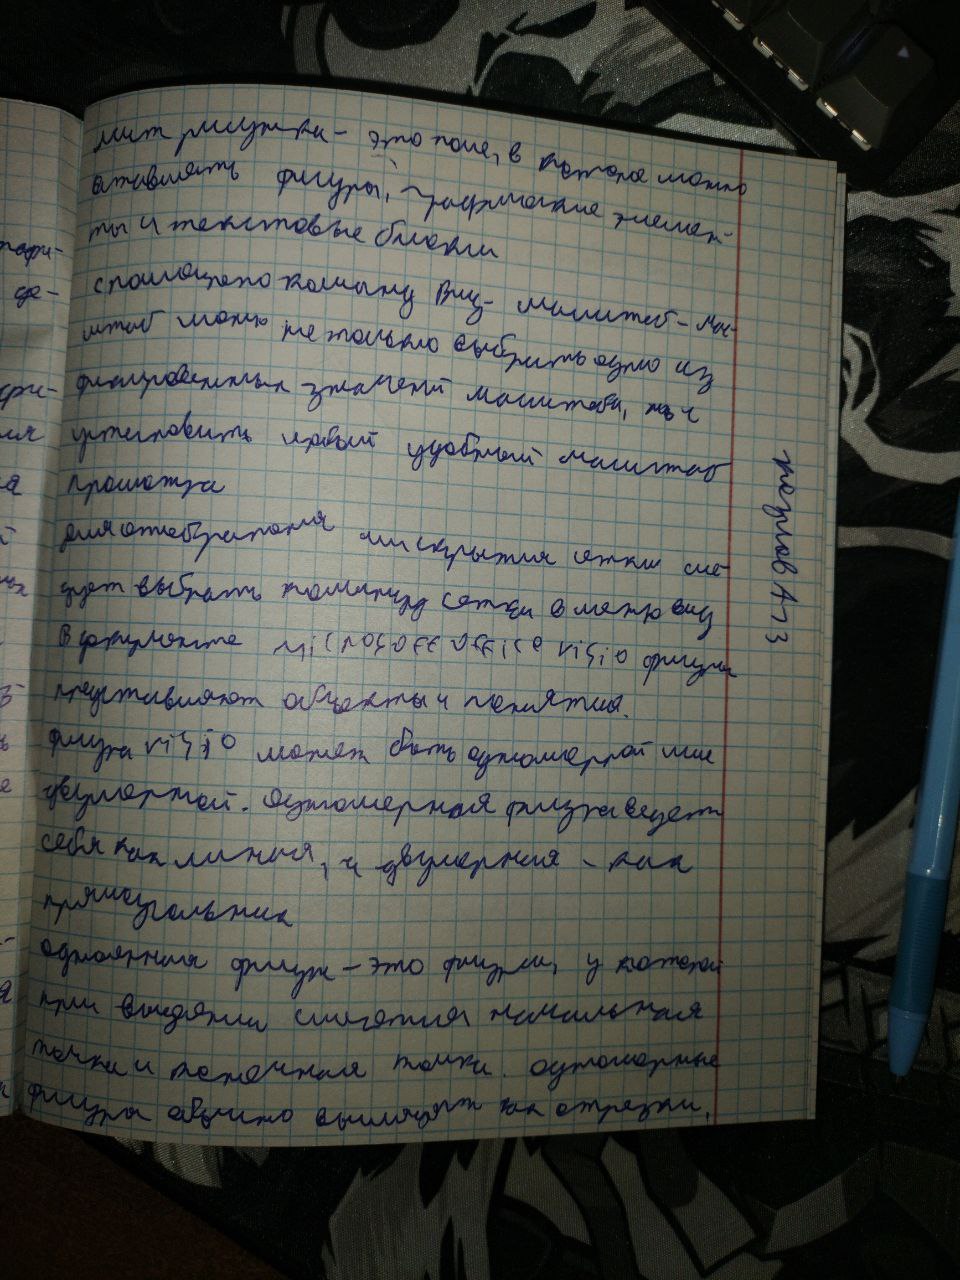 лист рисунка - это поле, в которое можно
вставлять фигуры, графические элемен-
ты и текстовые блоки
с помощью команды Вид - масштаб - ма-
штаб можно не только выбрать одно из
фиксированных значений масштаба, но и
установить любой удобный масштаб
просмотра
для отображения или скрытия сетки сле-
дует выбрать команду сетка в меню вид
В документе Microsoft office visio фигуры
представляют объекты и понятия.
фигура visio может быть одномерной или
двумерной. Одномерная фигура ведет
себя как линия, а двумерная - как
прямоугольник
одномерная фигура - это фигура, у которой
при выделении имеется начальная
точка и конечная точка. одномерные
фигуры обычно выглядят как отрезки,
А-13